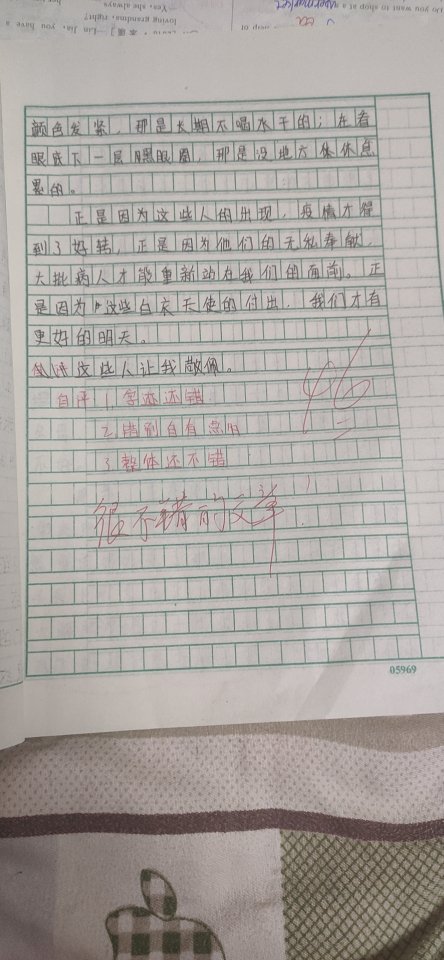 颜色发紧，那是长期不喝水干的；在看
眼底下一层黑眼圈，那是没地方体休息
累的。
正是因为这些人的出现，疫情才得
到了好转，正是因为他们的无私奉献，
大批病人才能重新站在我们的面前。正
是因为这些白衣天使的付出，我们才有
更好的明天。
这些人让我敬佩。
46
自评 1.字迹还错
2.错别自有点
3.整体还不错
很不错的文章！
05969